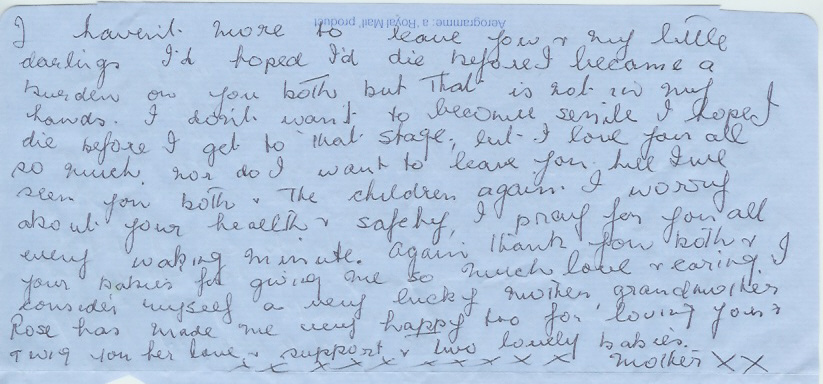 Aerogramme: a 'Royal Mail' product
I haven't more to leave you & my little
darlings I'd hoped I'd die before I became a
burden on you both but that is not in my
hands. I don't want to become senile I hope I
die before I get to that stage, but I love you all
so much, nor do I want to leave you till I've
seen you both & the children again. I worry
about your health & safety, I pray for you all
every waking minute. Again thank you both &
your babies for giving me so much love & caring. I
consider myself a very lucky mother, grandmother
Rose has made me very happy too for loving you &
giving you her love & support & two lovely babies.
x x x x x x x x x Mother X X